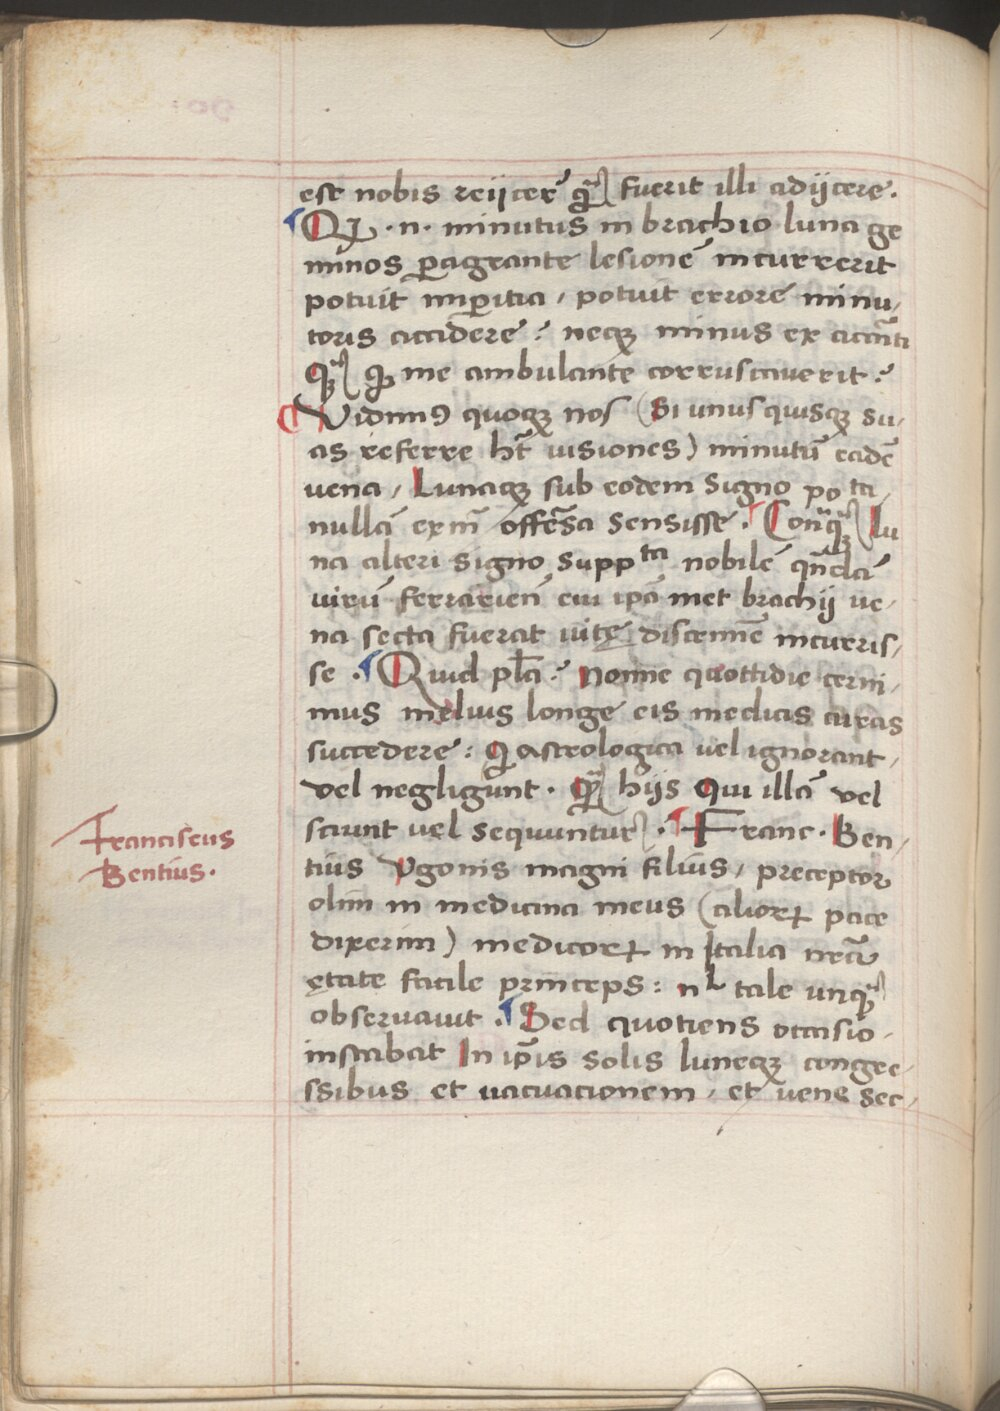 est nobis reijcer̃ q̃ꝫ fuerit illi adijcere.
Qꝫ .n. minutus in brachio luna ge
minos ꝑagrante lesionẽ incurrerit
potuit imꝑitia, potuit errore minu,
toris accidere? neqꝫ minus ex accñti
ꝙ me ambulante corruscauerit?
Vidimꝰ quoqꝫ nos (Si unusquisqꝫ su,
as referre hꝫt uisiones) minutũ eadẽ
uena, Lunaqꝫ sub eodem signo po^ta,
nullã exinᷓ offensã sensisse. Lu
na alteri signo supp^ta nobilẽ quendã
uirũ ferrarien̄ cui ipã met brachij ue,
na secta fuerat uitę discrimẽ incurris,
se. Quid pl̃a? Nonne quottidie cerni,
mus melius longe eis medicis curas
succedere: ꝗ astrologica uel ignorant,
vel negligunt. q̃ꝫ hijs Qui illã vel
sciunt uel sequuntur. Franc. Ben,
tius Vgonis magni filius, preceptor
olim in medicina meus (alioꝝ pace
dixerim) medicoꝝ in Italia nr̃a
ętate facile princeps: n^l tale unq̃ꝫ
obseruauit. Sed quotiens occasio,
instabat In ip̃is solis luneqꝫ congre,
ssibus et uacuationem, et uene sec,
Franciscus
Bentius.